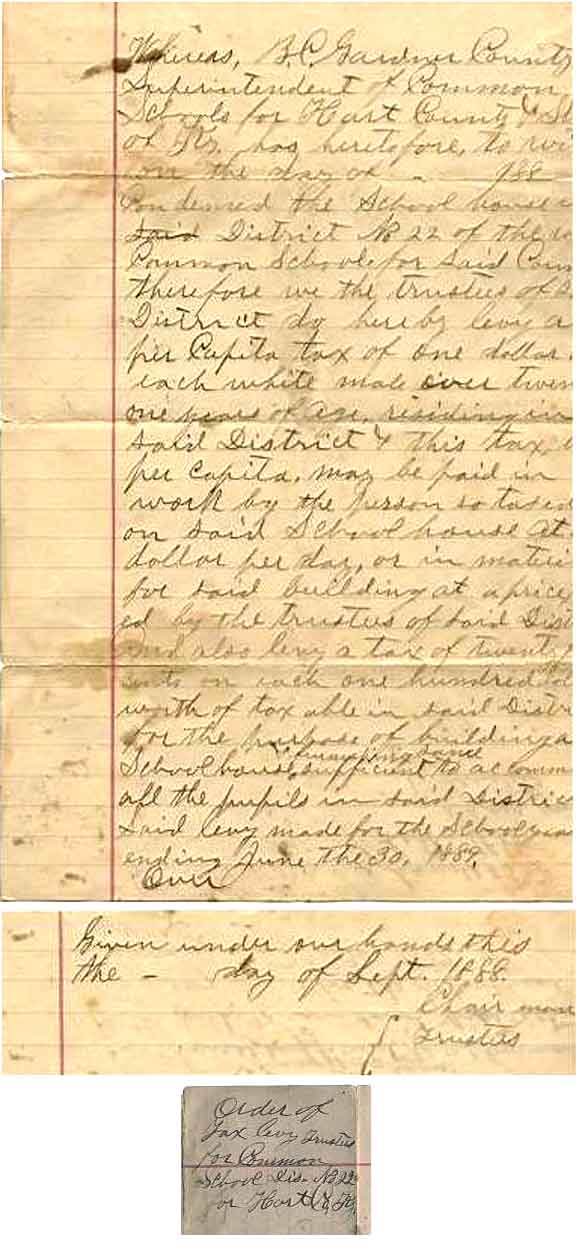 Whereas, B.C. Gardner County
Superintendent of Common
Schools for Hart County & St
of Ky. has heretofore, to wit
on the day of - 188
Condemed the School house
said District No 22 of the
Common Schools for said Coun
therefore we the trustees of
District do hereby levy a
per Capita tax of one dollar
each white male over twen
one years of age, residing in
said District & this tax,
per capita, may be paid in
work by the person so taxed
on said School house at
dollar per day, or in materi
for said building at a price
ed by the trustees of said Dist
And also levy a tax of twenty
cents on each one hundred dol
worth of tax able in said Distri
for the purpose of building a
& furnishing same
School house, sufficient to accomm
all the pupils in said District
Said levy made for the School year
ending June the 30, 1889.
Over
Given under our hands this
the - day of Sept. 1888.
Chair man
Trustees
Order of
Tax levy Trustees
for Common
School Dis. No 22
for Hart Co, Ky,